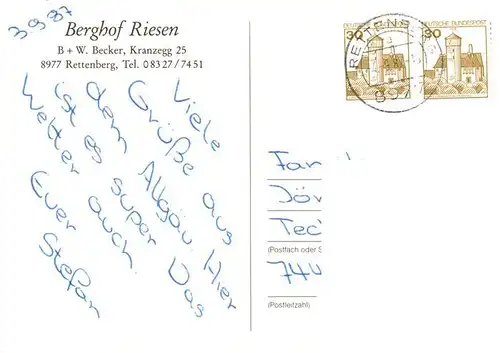 3.9.87
Berghof Riesen
B + W. Becker, Kranzegg 25
8977 Rettenberg, Tel. 0 83 27 / 74 51
Viele
Grüße aus
dem Allgäu. Hier
ist es super. Das
Wetter auch.
Euer
Stefan
30
DEUTSCHE BUNDESPOST
30
DEUTSCHE BUNDESPOST
RETTENB
897
Fam
Jör
Tec
(Postfach oder S
744
(Postleitzahl)